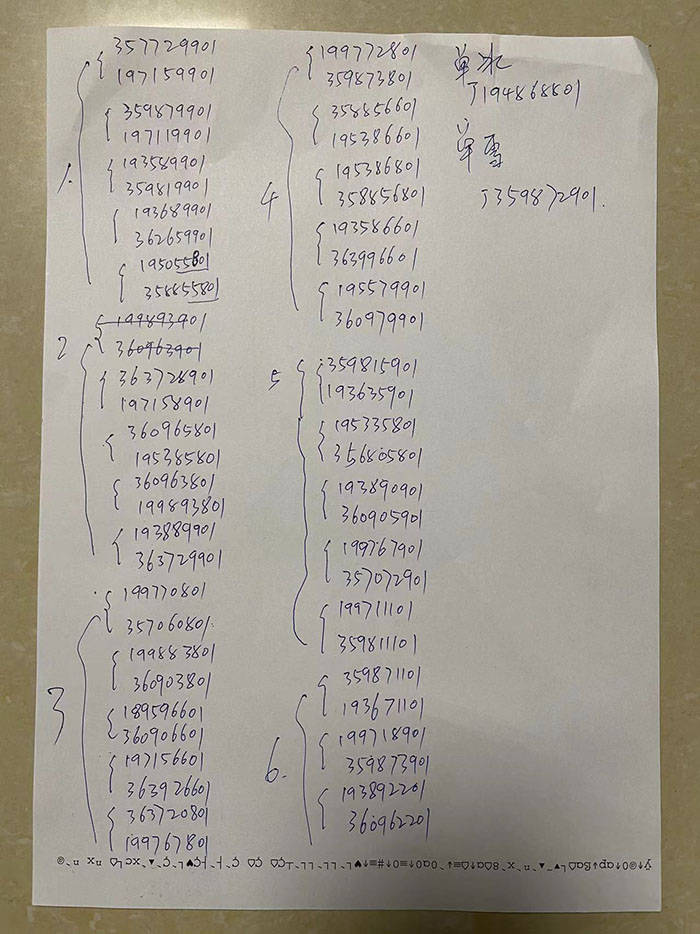 1.
357729901
197159901
359879901
197119901
193589901
359819901
193689901
362659901
195055801
358855801
2
199893901
360963901
363728901
197158901
360965801
195385801
360963801
199893801
193889901
363729901
3
199770801
357060801
199883801
360903801
189596601
360906601
197156601
363926601
363720801
199767801
4
199772801
359873801
358856601
195386601
195386801
358856801
193586601
363996601
195579901
360979901
5
359815901
193635901
195335801
356805801
193890901
360905901
199767901
357072901
199711101
359811101
6.
359871101
193671101
199718901
359873901
193892201
360962201
单冰
J194868801
单雪
J359872901.